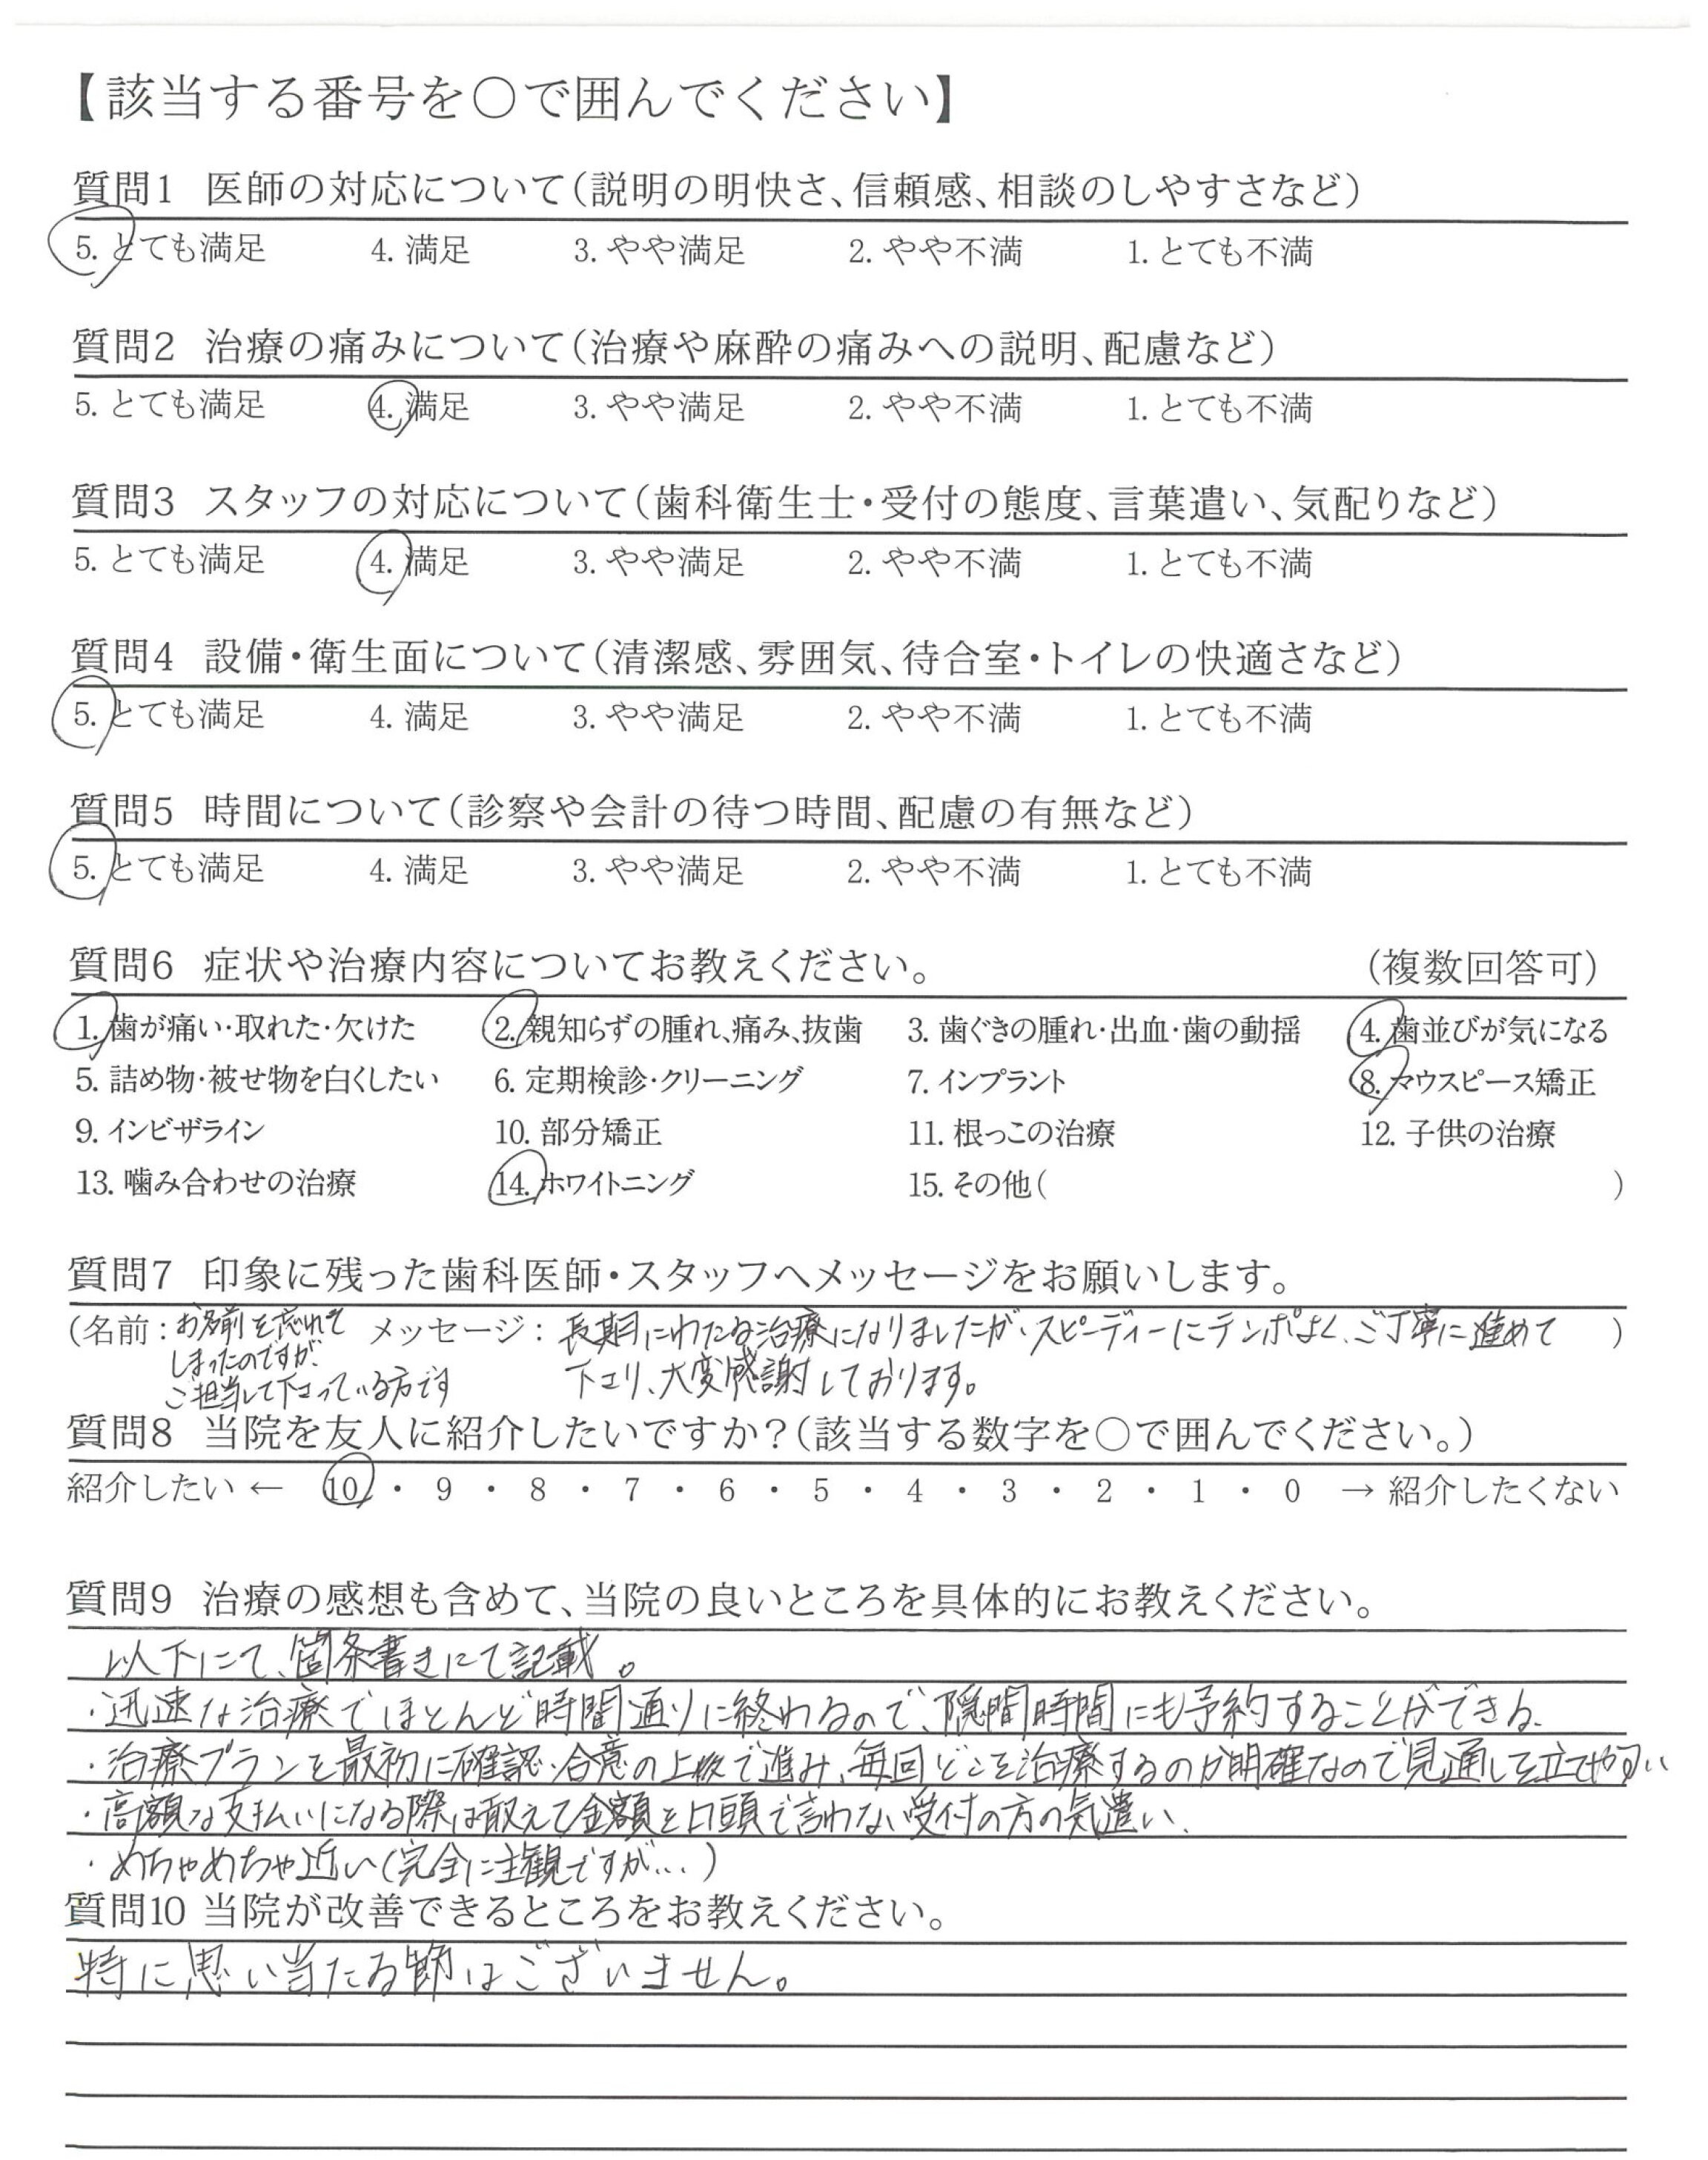 【該当する番号を○で囲んでください】
質問1 医師の対応について（説明の明快さ、信頼感、相談のしやすさなど）
5. とても満足 4. 満足 3. やや満足 2. やや不満 1. とても不満
質問2 治療の痛みについて（治療や麻酔の痛みへの説明、配慮など）
5. とても満足 4. 満足 3. やや満足 2. やや不満 1. とても不満
質問3 スタッフの対応について（歯科衛生士・受付の態度、言葉遣い、気配りなど）
5. とても満足 4. 満足 3. やや満足 2. やや不満 1. とても不満
質問4 設備・衛生面について（清潔感、雰囲気、待合室・トイレの快適さなど）
5. とても満足 4. 満足 3. やや満足 2. やや不満 1. とても不満
質問5 時間について（診察や会計の待つ時間、配慮の有無など）
5. とても満足 4. 満足 3. やや満足 2. やや不満 1. とても不満
質問6 症状や治療内容についてお教えください。 （複数回答可）
1. 歯が痛い・取れた・欠けた 2. 親知らずの腫れ、痛み、抜歯 3. 歯ぐきの腫れ・出血・歯の動揺 4. 歯並びが気になる
5. 詰め物・被せ物を白くしたい 6. 定期検診・クリーニング 7. インプラント 8. マウスピース矯正
9. インビザライン 10. 部分矯正 11. 根っこの治療 12. 子供の治療
13. 噛み合わせの治療 14. ホワイトニング 15. その他（ ）
質問7 印象に残った歯科医師・スタッフへメッセージをお願いします。
（名前：お名前を忘れて メッセージ：長期にわたる治療になりましたが、スピーディーにテンポよく、ご丁寧に進めて ）
しまったのですが、
ご担当して下さっている方です 下さり、大変感謝しております。
質問8 当院を友人に紹介したいですか？（該当する数字を○で囲んでください。）
紹介したい ← 10 ・ 9 ・ 8 ・ 7 ・ 6 ・ 5 ・ 4 ・ 3 ・ 2 ・ 1 ・ 0 → 紹介したくない
質問9 治療の感想も含めて、当院の良いところを具体的にお教えください。
以下にて、箇条書きにて記載。
・迅速な治療でほとんど時間通りに終わるので、隙間時間にも予約することができる、
・治療プランを最初に確認、合意の上で進み、毎回どこを治療するのか明確なので見通しを立てやすい
・高額な支払いになる際は敢えて金額を口頭で言わない受付の方の気遣い、
・めちゃめちゃ近い（完全に主観ですが…）
質問10 当院が改善できるところをお教えください。
特に思い当たる節はございません。